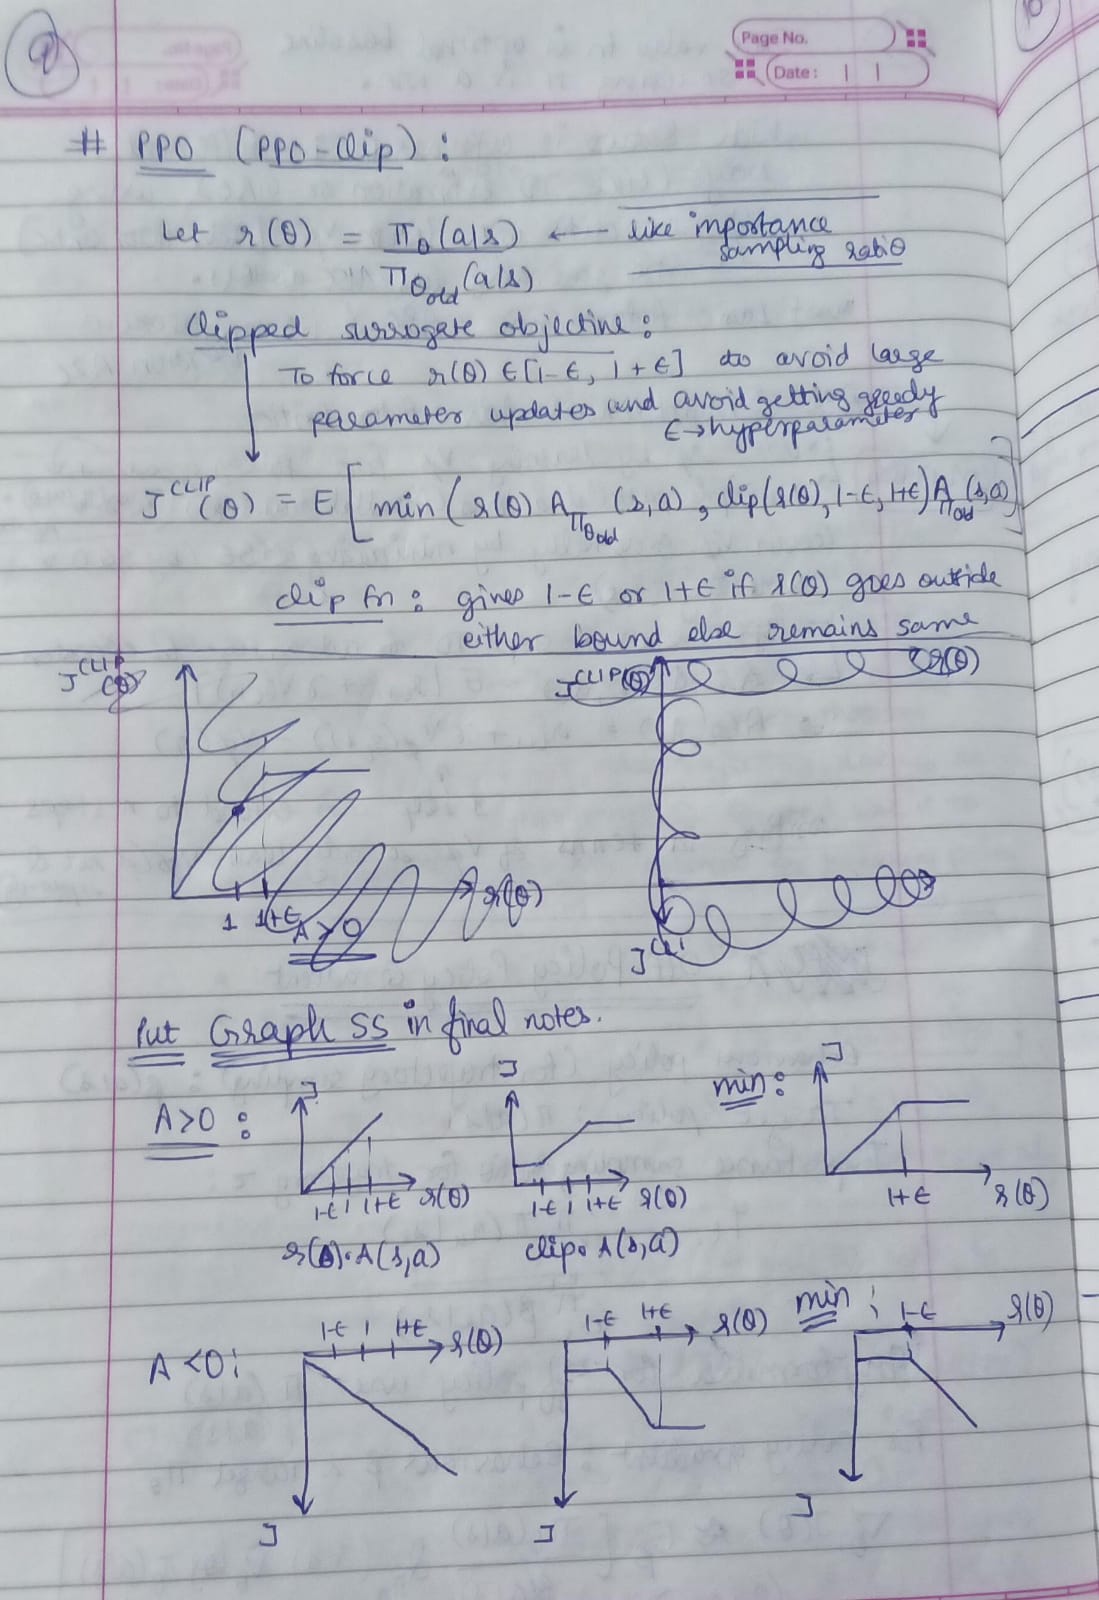 9
10
Page No.
Date: | |
# PPO (PPO-Clip) :
Let r(θ) = π_θ(a|s) ← like importance
sampling ratio
π_θold(a|s)
Clipped surrogate objective :
To force r(θ) ∈ [1-ϵ, 1+ϵ] to avoid large
parameter updates and avoid getting greedy
ϵ → hyperparameter
J^CLIP(θ) = E[ min ( r(θ) A_πθold (s,a) , clip(r(θ), 1-ϵ, 1+ϵ) A_πold (s,a) ]
clip fn : gives 1-ϵ or 1+ϵ if r(θ) goes outside
either bound else remains same
J^CLIP(θ) J^CLIP(θ) r(θ)
r(θ)
1 1+ϵ
A > 0
Put Graph SS in final notes.
J J min : J
A>0 :
1-ϵ 1 1+ϵ r(θ) 1-ϵ 1 1+ϵ r(θ) 1+ϵ r(θ)
r(θ)·A(s,a) clip·A(s,a)
1-ϵ 1 1+ϵ r(θ) 1-ϵ 1+ϵ r(θ) min : 1-ϵ r(θ)
A <0 :
J J J